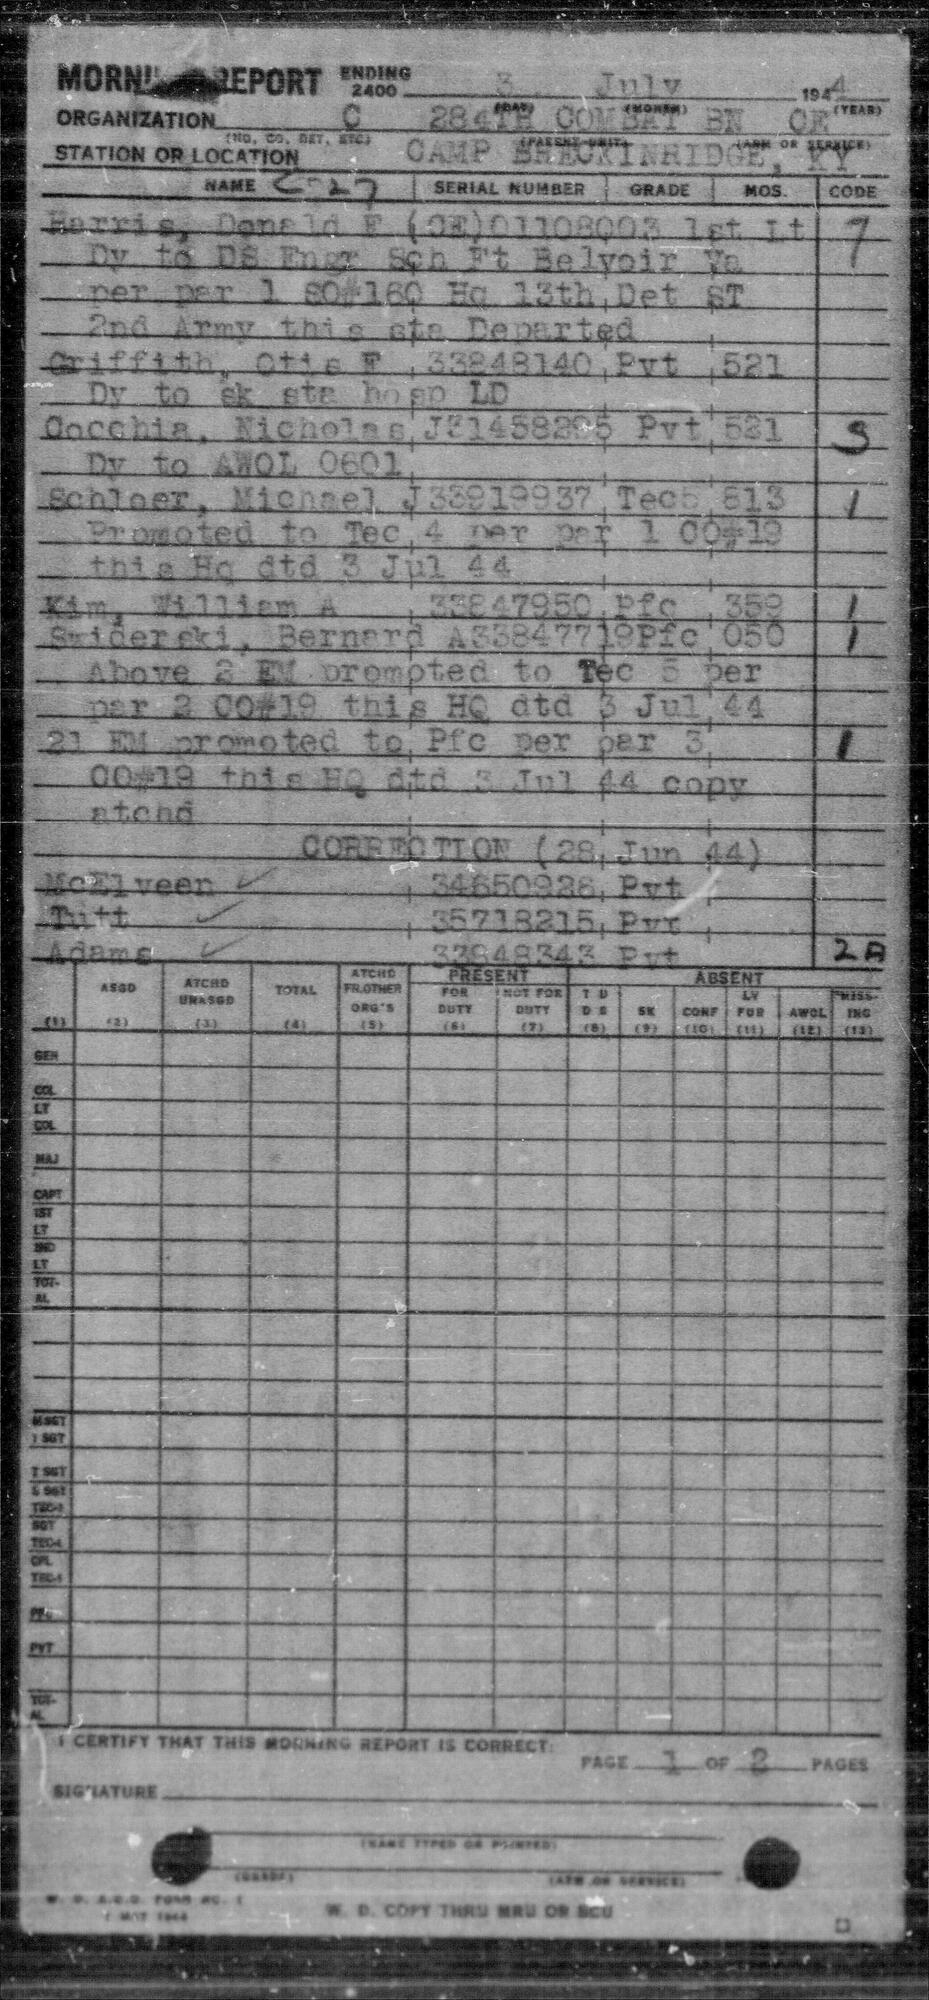 MORNING REPORT ENDING 2400 3 July 1944
(DAY) (MONTH) (YEAR)
ORGANIZATION C 284TH COMBAT BN CE
(NO. CO, DET, ETC) (PARENT UNIT) (ARM OR SERVICE)
STATION OR LOCATION CAMP BRECKINRIDGE, KY
NAME C-27 SERIAL NUMBER GRADE MOS. CODE
Harris, Donald F (CE)01108003 1st Lt 7
Dy to DS Engr Sch Ft Belvoir Va
per par 1 SO#160 Hq 13th Det ST
2nd Army this sta Departed
Griffith, Otis F 33848140 Pvt 521
Dy to sk sta hosp LD
Cocchia, Nicholas J31458295 Pvt 521 S
Dy to AWOL 0601
Schloer, Michael J33819937 Tec5 813 1
Promoted to Tec 4 per par 1 CO#19
this Hq dtd 3 Jul 44
Kim, William A 33847950 Pfc 359 1
Swiderski, Bernard A33847719Pfc 050 1
Above 2 EM promoted to Tec 5 per
par 2 CO#19 this HQ dtd 3 Jul 44
21 EM promoted to Pfc per par 3 1
CO#19 this HQ dtd 3 Jul 44 copy
atchd
CORRECTION (28 Jun 44)
McElveen ✓ 34650926 Pvt
Tutt ✓ 35718215 Pvt
Adams ✓ 33848343 Pvt 2A
ASGD ATCHD UNASGD TOTAL ATCHD FR.OTHER ORG'S PRESENT FOR DUTY NOT FOR DUTY ABSENT T D D S SK CONF LV FUR AWOL MISS-ING
(1) (2) (3) (4) (5) (6) (7) (8) (9) (10) (11) (12) (13)
GEN
COL
LT
COL
MAJ
CAPT
1ST
LT
2ND
LT
TOT-
AL
M SGT
1 SGT
T SGT
S SGT
TEC-3
SGT
TEC-4
CPL
TEC-5
PFC
PVT
TOT-
AL
I CERTIFY THAT THIS MORNING REPORT IS CORRECT:
PAGE 1 OF 2 PAGES
SIGNATURE
(NAME TYPED OR PRINTED)
(GRADE) (ARM OR SERVICE)
W. D. A.G.O. FORM NO. 1
W. D. COPY THRU MRU OR SCU